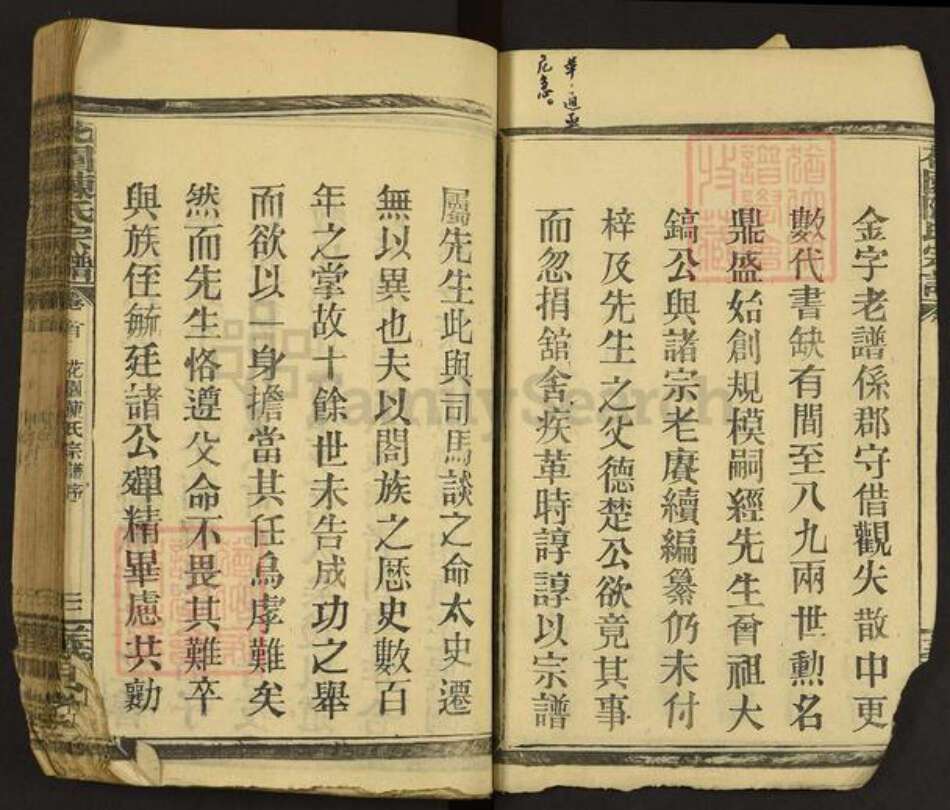 革㐫通亟
危急。
金字老譜係郡守借觀失散中更
數代書缺有間至八九兩世勳名
鼎盛始創規模嗣經先生曾祖大
鎬公與諸宗老賡續編纂仍未付
梓及先生之父德楚公欲竟其事
而忽捐舘舍疾革時諄諄以宗譜
屬先生此與司馬談之命太史遷
無以異也夫以閤族之歷史數百
年之掌故十餘世未告成功之舉
而欲以一身擔當其任烏虖難矣
然而先生恪遵父命不畏其難卒
與族侄毓廷諸公殫精畢慮共勷
花園陳氏宗譜
卷首
花園陳氏宗譜序
三
FamilySearch